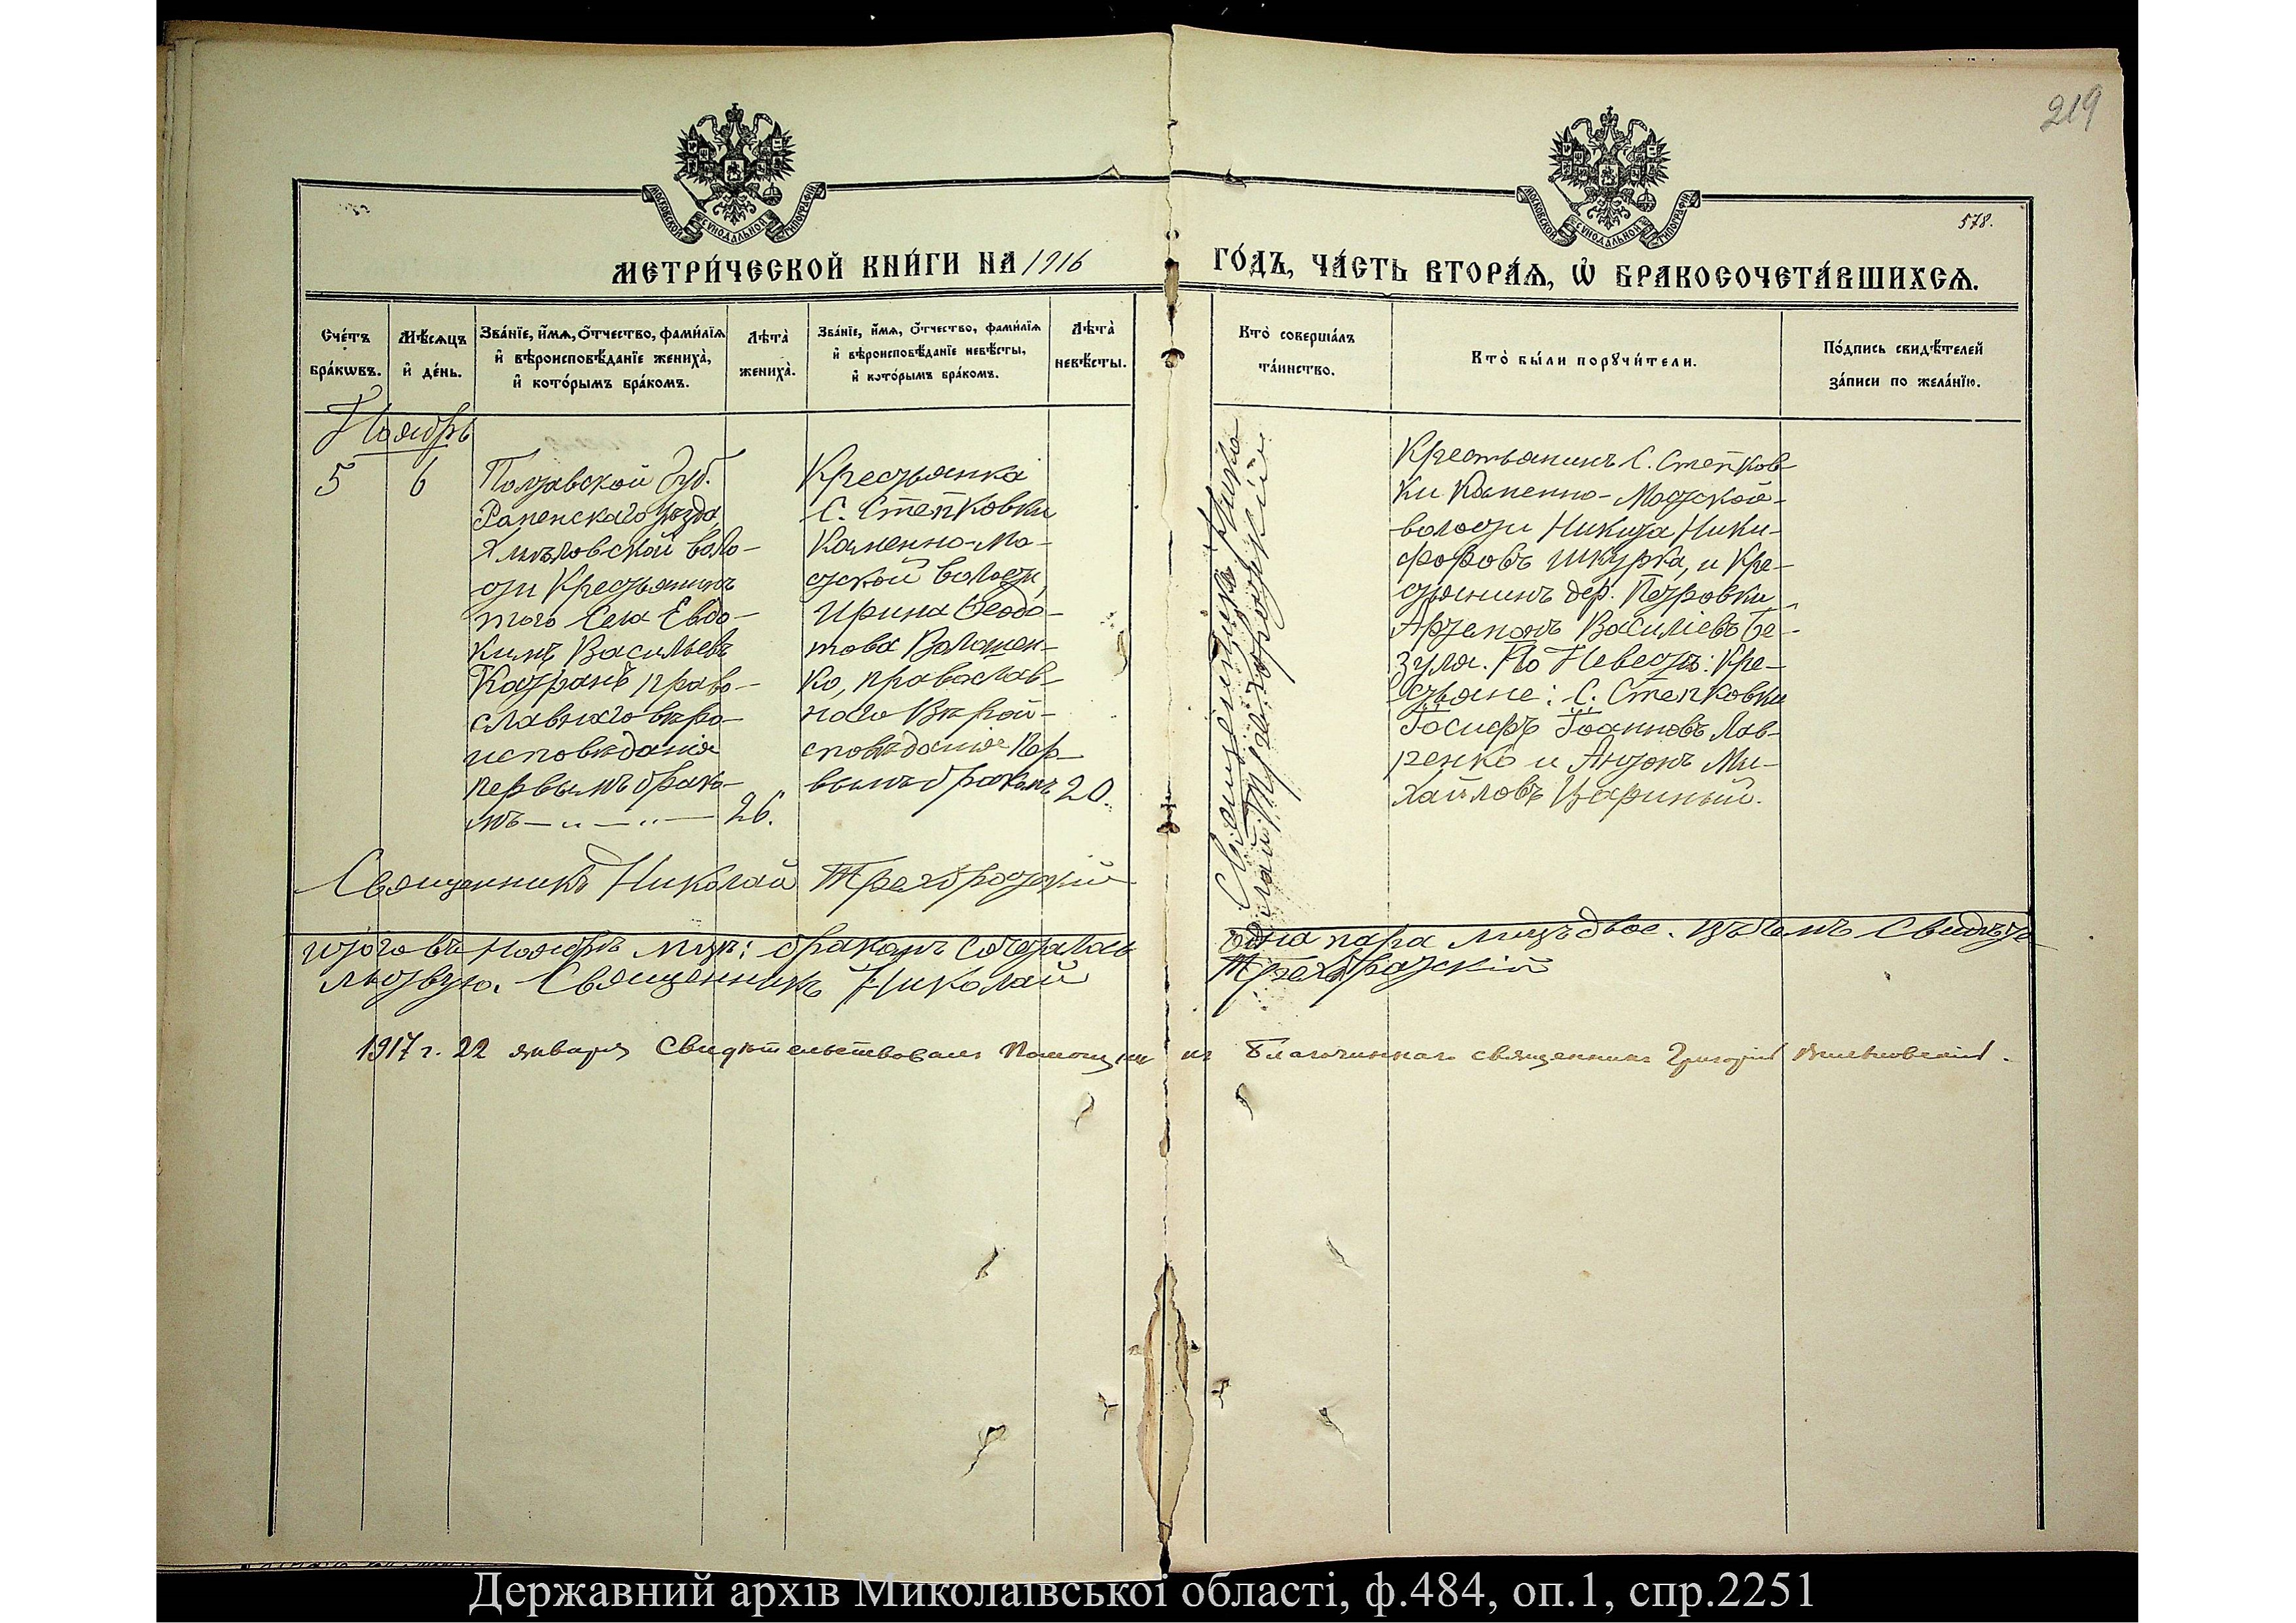 219
578.
МОСКОВСКОЙ СѴНОДАЛЬНОЙ ТИПОГРАФІИ
МОСКОВСКОЙ СѴНОДАЛЬНОЙ ТИПОГРАФІИ
МЕТРИ́ЧЕСКОЙ КНИ́ГИ НА 1916
ГО́ДЪ, ЧА́СТЬ ВТОРА́Ѧ, Ѡ҆ БРАКОСОЧЕТА́ВШИХСѦ.
Сче́тъ бра́кѡвъ.
Мѣ́сѧцъ и҆ де́нь.
Зва́нїе, и҆́мѧ, ѻ҆́тчество, фами́лїѧ
и҆ вѣроисповѣ́данїе жениха̀,
и҆ кото́рымъ бра́комъ.
Лѣта̀ жениха̀.
Зва́нїе, и҆́мѧ, ѻ҆́тчество, фами́лїѧ
и҆ вѣроисповѣ́данїе невѣ́сты,
и҆ кото́рымъ бра́комъ.
Лѣта̀ невѣ́сты.
Кто̀ соверша́лъ
та́инство.
Кто̀ бы́ли порꙋчи́тели.
По́дпись свидѣ́телей
за́писи по жела́нїю.
Ноябрь
5
6
Полтавской Губ.
Роменскаго уѣзда,
Хмѣловской воло-
сти Крестьянинъ
того Села Евдо-
кимъ Васильевъ
Костранъ право-
славнаго вѣро-
исповѣданія
первымъ брако-
мъ — „ — „ —
26.
Крестьянка
С. Степковки
Каменно-Мо-
стской волости,
Ирина Ѳеодо-
това Волошен-
ко, православ-
наго Вѣрои-
сповѣданія Пер-
вымъ бракомъ
20.
Священникъ Нико-
лай
Крестьянинъ С. Степков-
ки Каменно-Мостской-
волости Никита Ники-
форовъ Шкурка, и Кре-
стьянинъ дер. Петровки
Артемонъ Василіевъ Бе-
зуля. По Невестѣ: Кре-
стьяне: С. Степковки
Іосифъ Іоанновъ Лав-
ренко и Антонъ Ми-
хайловъ Цариный.
Священникъ Николай
Итого въ Ноябрѣ мцѣ: бракомъ Сочеталась
одна пара лицъ двое. Въ чемъ Свидѣте
льствую. Священникъ Николай
1917 г. 22 января Свидѣтельствовалъ Помощникъ Благочиннаго священникъ Григорій
Державний архів Миколаївської області, ф.484, оп.1, спр.2251